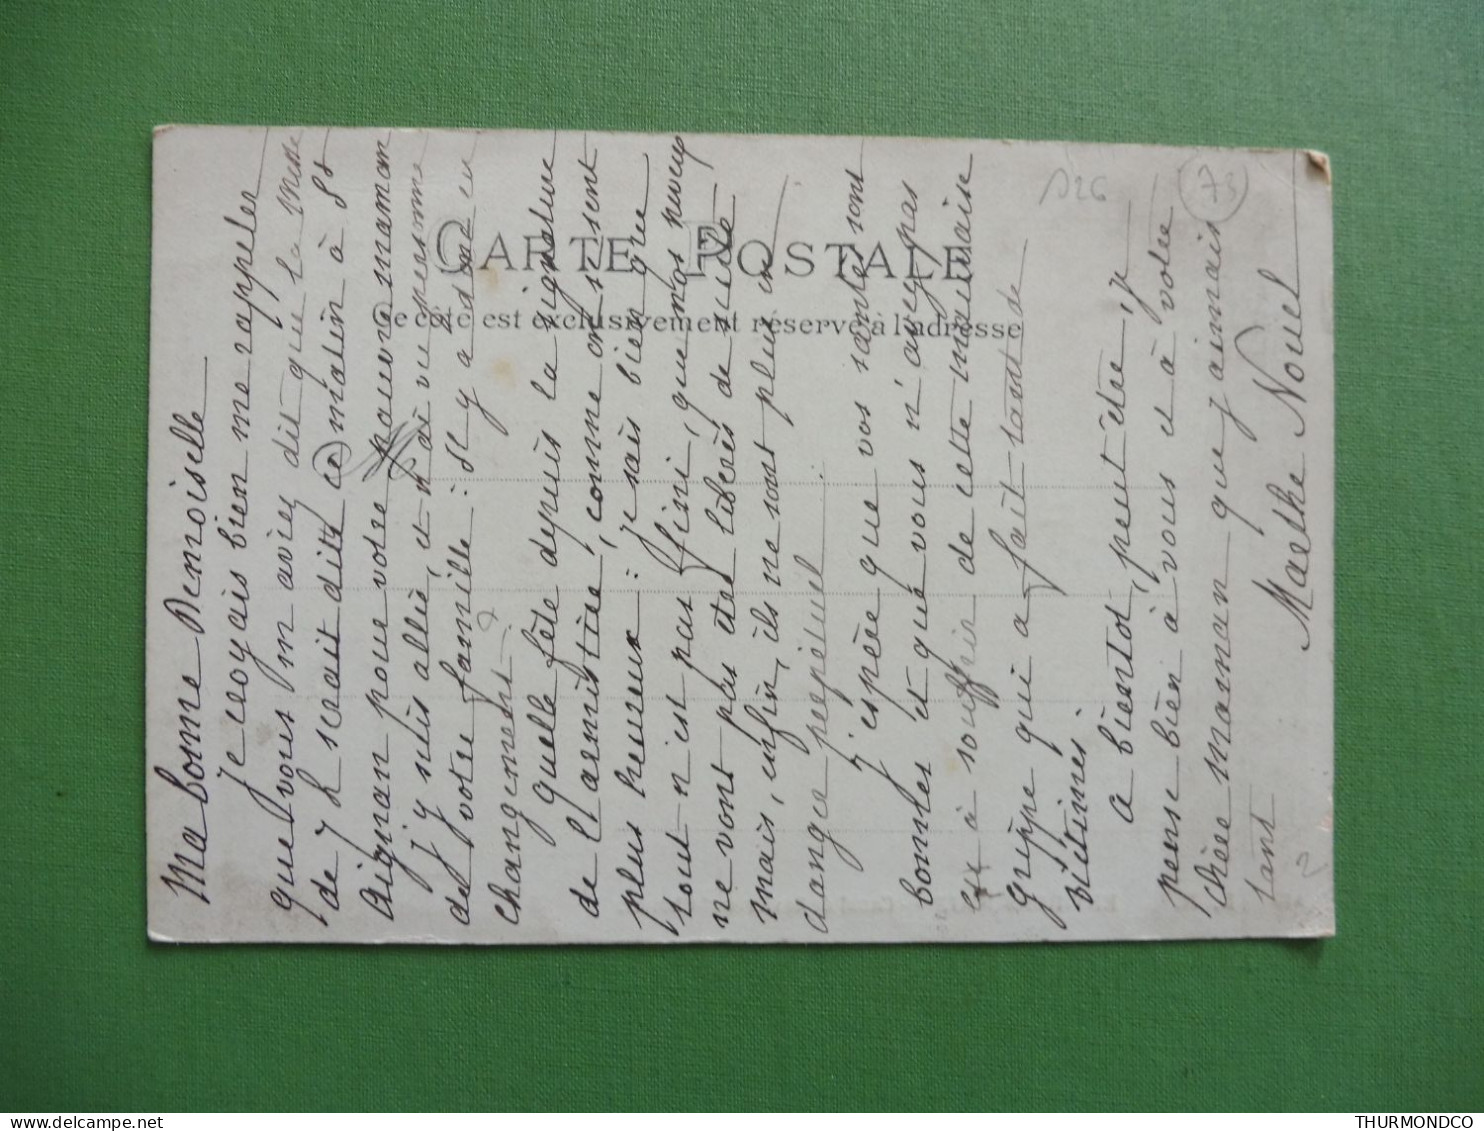 CARTE POSTALE
Ce côté est exclusivement réservé à l'adresse
Ma bonne Demoiselle
Je croyais bien me rappeler
que vous m'aviez dit que la Messe
de 7 h serait dite ce matin à St
Aignan pour votre pauvre maman
j'y suis allée, et n'ai vu personne
de votre famille : il y a donc eu
changement.
Quelle fête depuis la signature
de l'armistice, comme on se sent
plus heureux : je sais bien que
tout n'est pas fini, que nos neveux
ne vont pas être libérés de suite
mais, enfin, ils ne sont plus en
danger perpétuel.
J'espère que vos santés sont
bonnes et que vous n'avez pas
eu à souffrir de cette mauvaise
grippe qui a fait tant de
victimes.
A bientôt, peut être, je
pense bien à vous et à votre
chère maman que j'aimais
tant
Marthe Nouel
73
2
THURMONDCO